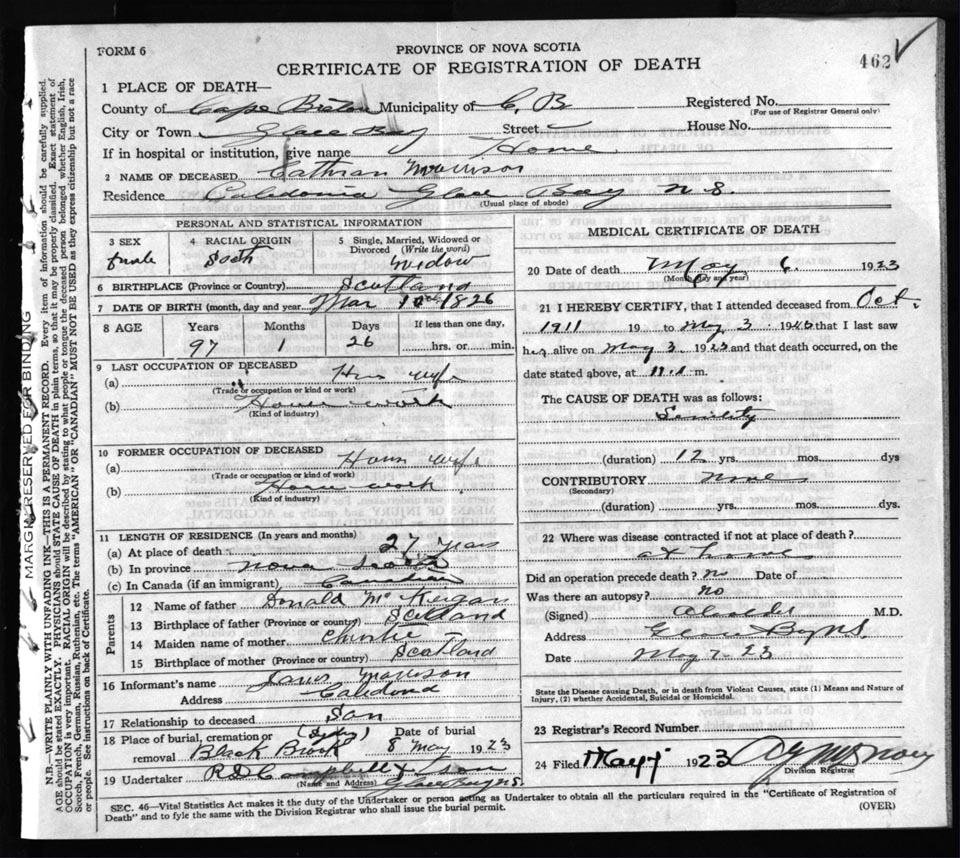 FORM 6
PROVINCE OF NOVA SCOTIA
CERTIFICATE OF REGISTRATION OF DEATH
462
1 PLACE OF DEATH—
County of Cape Breton Municipality of C. B
Registered No.
(For use of Registrar General only)
City or Town Glace Bay Street
House No.
If in hospital or institution, give name Home
2 NAME OF DECEASED Cathran Morrison
Residence Caledonia Glace Bay N S.
(Usual place of abode)
PERSONAL AND STATISTICAL INFORMATION
3 SEX
4 RACIAL ORIGIN
5 Single, Married, Widowed or Divorced (Write the word)
female
Scotch
Widow
6 BIRTHPLACE (Province or Country) Scotland
7 DATE OF BIRTH (month, day and year) Mar 10th 1826
8 AGE
Years
Months
Days
If less than one day,
97
1
26
hrs. or min.
9 LAST OCCUPATION OF DECEASED
(a) Hous wife
(Trade or occupation or kind or work)
(b) House work
(Kind of industry)
10 FORMER OCCUPATION OF DECEASED
(a) Hous wife
(Trade or occupation or kind of work)
(b) House work
(Kind of industry)
11 LENGTH OF RESIDENCE (In years and months)
(a) At place of death 27 years
(b) In province Nova Scotia
(c) In Canada (if an immigrant) Canadian
Parents
12 Name of father Donald McKeigan
13 Birthplace of father (Province or country) Scotland
14 Maiden name of mother Christie
15 Birthplace of mother (Province or country) Scotland
16 Informant's name Morrison
Address Caledonia
17 Relationship to deceased Son
18 Place of burial, cremation or removal Black Brook
Date of burial
8 May 1923
19 Undertaker R D Campbell & Son
(Name and Address) Glace Bay N S.
MEDICAL CERTIFICATE OF DEATH
20 Date of death May 6 1923
(Month, day and year)
21 I HEREBY CERTIFY, that I attended deceased from Oct.
1911 19 to May 3 1923 that I last saw
her alive on May 3 1923 and that death occurred, on the
date stated above, at m.
The CAUSE OF DEATH was as follows:
Senility
(duration) 12 yrs. mos. dys
CONTRIBUTORY None
(Secondary)
(duration) yrs. mos. dys.
22 Where was disease contracted if not at place of death?
at home
Did an operation precede death? no Date of
Was there an autopsy? no
(Signed) M.D.
Address Glace Bay N S.
Date May 7 23
State the Disease causing Death, or in death from Violent Causes, state (1) Means and Nature of Injury, (2) whether Accidental, Suicidal or Homicidal.
23 Registrar's Record Number
24 Filed May 7 1923
Division Registrar
SEC. 46—Vital Statistics Act makes it the duty of the Undertaker or person acting as Undertaker to obtain all the particulars required in the "Certificate of Registration of
Death" and to fyle the same with the Division Registrar who shall issue the burial permit.
(OVER)
MARGIN RESERVED FOR BINDING
N.B.—WRITE PLAINLY WITH UNFADING INK—THIS IS A PERMANENT RECORD. Every item of information should be carefully supplied.
AGE should be stated EXACTLY. PHYSICIANS should STATE CAUSE OF DEATH in plain terms, so that it may be properly classified. Exact statement of
OCCUPATION is very important. RACIAL ORIGIN will be described by stating to what people or tongue the deceased person belonged whether English, Irish,
Scotch, French, German, Russian, Ruthenian, etc. The terms "AMERICAN" OR "CANADIAN" MUST NOT BE USED as they express citizenship but not a race
or people. See instructions on back of Certificate.